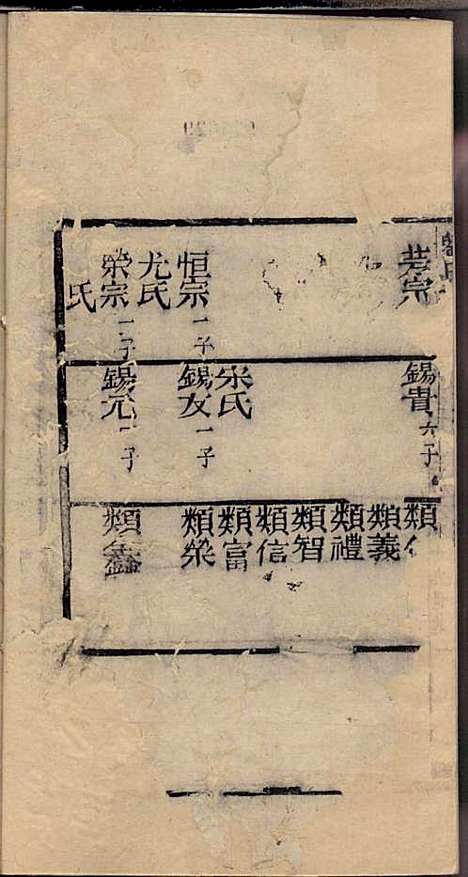 芳宗
恒宗 一子
尤氏
榮宗 一子
氏
錫貴 六子
宋氏
錫友 一子
錫元 一子
類
類義
類禮
類智
類信
類富
類榮
類鑫